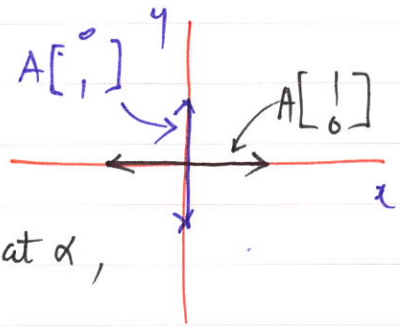 y
A[0 1]
A[1 0]
x
at α,